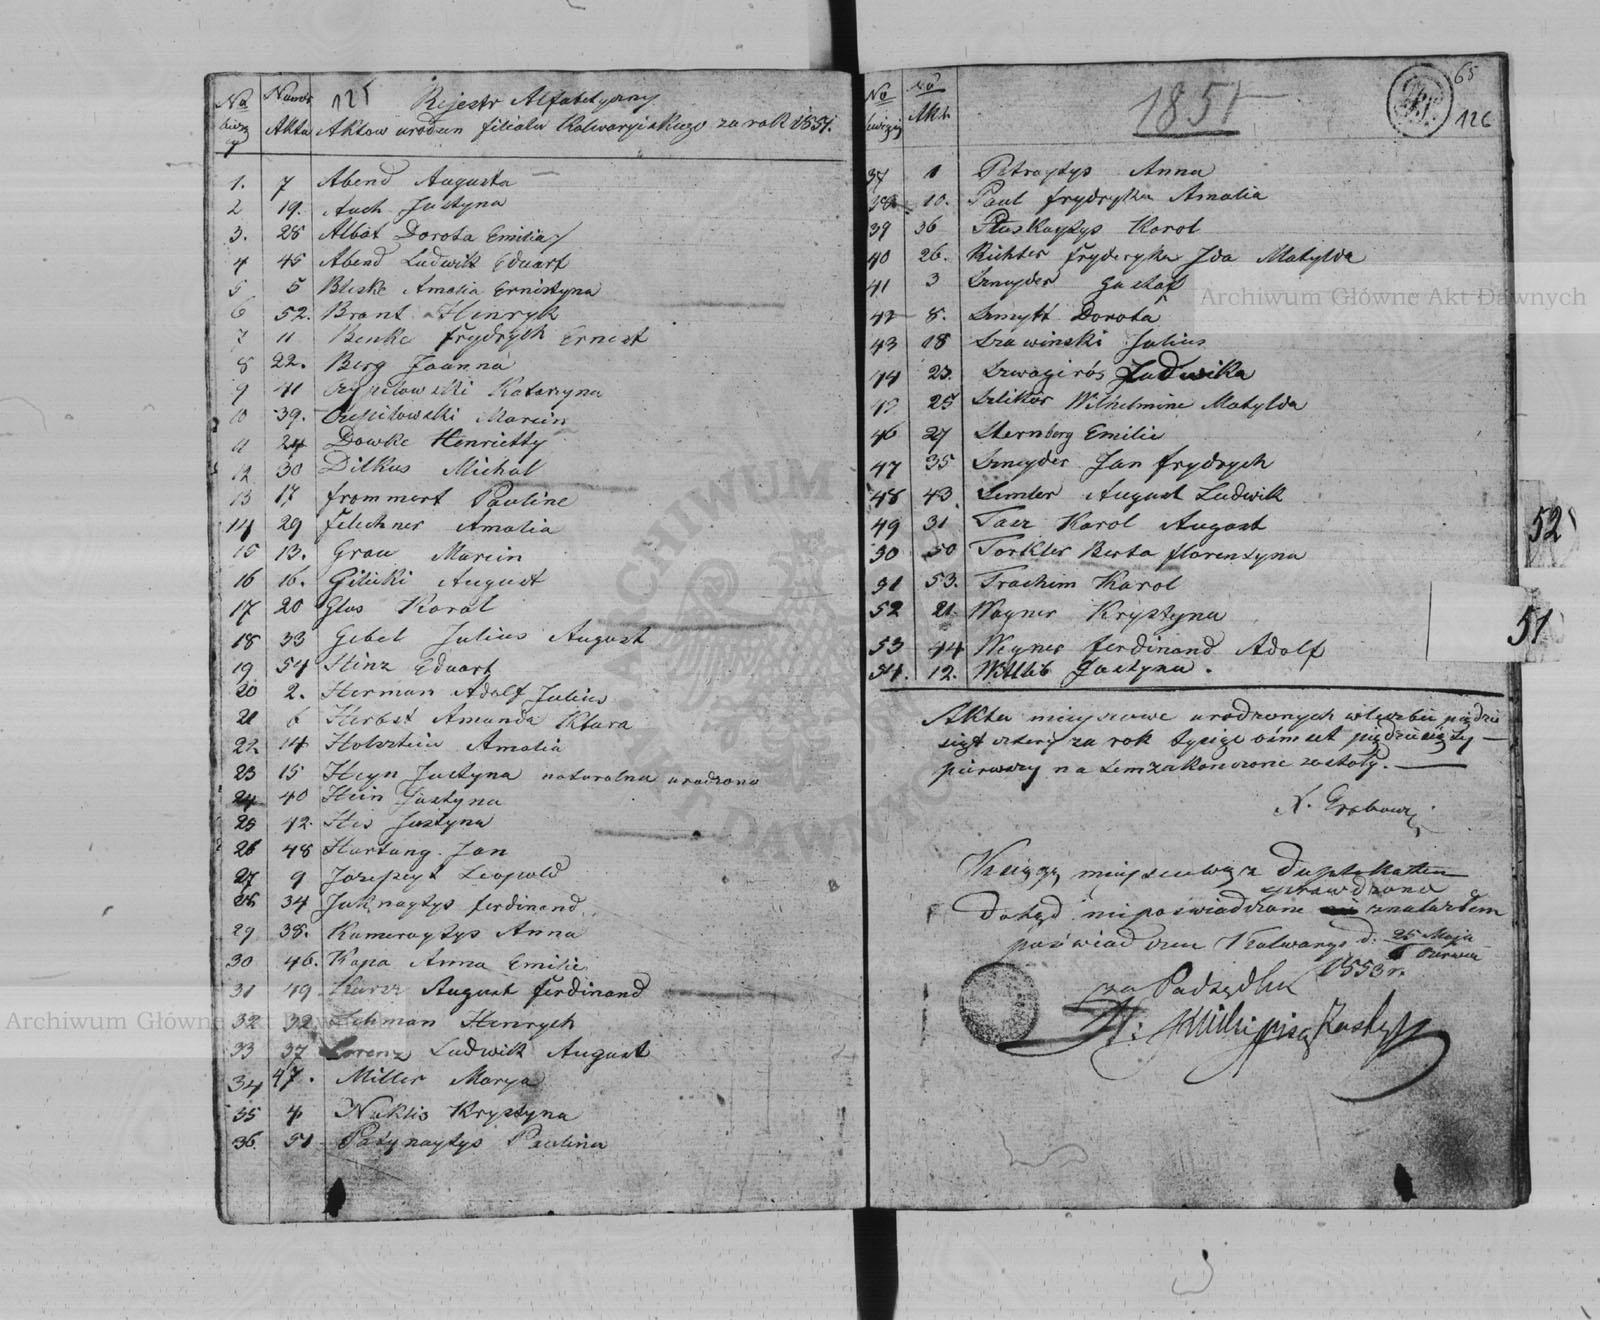 No
bieżący
Numer
Aktu
125
Rejestr Alfabetyczny
Aktow urodzen filialu Kalwaryiskiego za rok 1851.
1. 7 Abend Augusta
2 19. Auch Justyna
3. 28 Albat Dorota Emilia
4 45 Abend Ludwik Eduart
5 5 Bleske Amalia Ernistyna
6 52. Brant Henryk
7 11 Benke Frydrych Ernest
8 22. Berg Joanna
9 41 Czepilowski Katarzyna
10 39. Czepilowski Marcin
11 24 Dowke Henrietty
12 30 Dilkus Michal
13 17 Frommert Pauline
14 29 Felechner Amalia
15 13. Grau Marcin
16 16. Gilicki August
17 20 Glas Karol
18 33 Gebel Julius August
19 54 Hinz Eduart
20 2. Herman Adolf Julius
21 6 Herbst Amanda Klara
22 14 Holsztein Amalia
23 15 Heyn Justyna naturalna urodzona
24 40 Hein Justyna
25 42. His Justyna
26 48 Hartung Jan
27 9 Jozepeyt Leopold
28 34 Juknaytys Ferdinand
29 38. Kameraytys Anna
30 46. Kapa Anna Emilie
31 49 Kurz August Ferdinand
32 32 Lehman Henrych
33 37 Lorenz Ludwik August
34 47. Miller Marya
35 4 Naklis Krystyna
36. 51 Pażynaytys Paulina
No
bieżący
No
Akt.
1851
65
126
37 1 Petraytys Anna
38 10. Paul Frydryka Amalia
39 36 Pluskaytys Karol
40 26. Richter Fryderyka Ida Matylda
41 3 Sznyder Gustaf
42 8. Szmytt Dorota
43 18 Szawinski Julius
44 23. Szwagirós Ludwika
45 25 Szlikor Wilhelmine Matylda
46 27 Sternberg Emilie
47 35 Sznyder Jan Frydrych
48 43 Semler August Ludwik
49 31 Tacz Karol August
50 50 Torkler Berta Florentyna
51 53. Trachim Karol
52 21 Wagner Krystyna
53 44 Wegner Ferdinand Adolf
54. 12. Wittlib Justyna.
Akta mieyscowe urodzonych w liczbie piędzie
siąt cztery za rok tysiąc osimset piędziesiąty
pierwszy na tem zakonczone zostały.
Księga mieyscowa z Duplikatem
sprawdzona
Dotąd niepoświadczone znalazłem
poświadczam Kalwarya d. 25 Maja
Czerwca
1853 r.
za Podsędka
52
51
Archiwum Główne Akt Dawnych
Archiwum Główne Akt Dawnych
ARCHIWUM